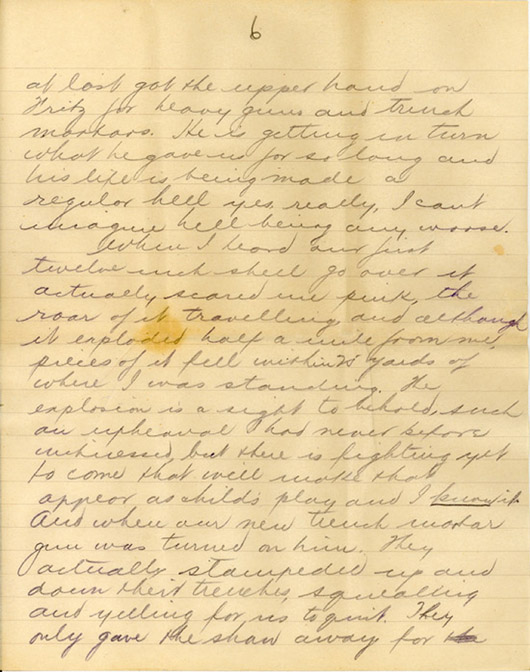 6
at last got the upper hand on
Fritz for heavy guns and trench
mortars. He is getting in turn
what he gave us for so long and
his life is being made a
regular hell yes, really, I cant
imagine hell being any worse.
When I heard our first
twelve inch shell go over it
actually scared me pink, the
roar of it travelling and although
it exploded half a mile from me,
pieces of it fell within yards of
where I was standing. The
explosion is a sight to behold, such
an upheaval I had never before
witnessed, but there is fighting yet
to come that will make that
appear as childs play and I know it.
And when our new trench mortar
gun was turned on him. They
actually stampeded up and
down their trenches, squealling
and yelling for us to quit. They
only gave the show away for